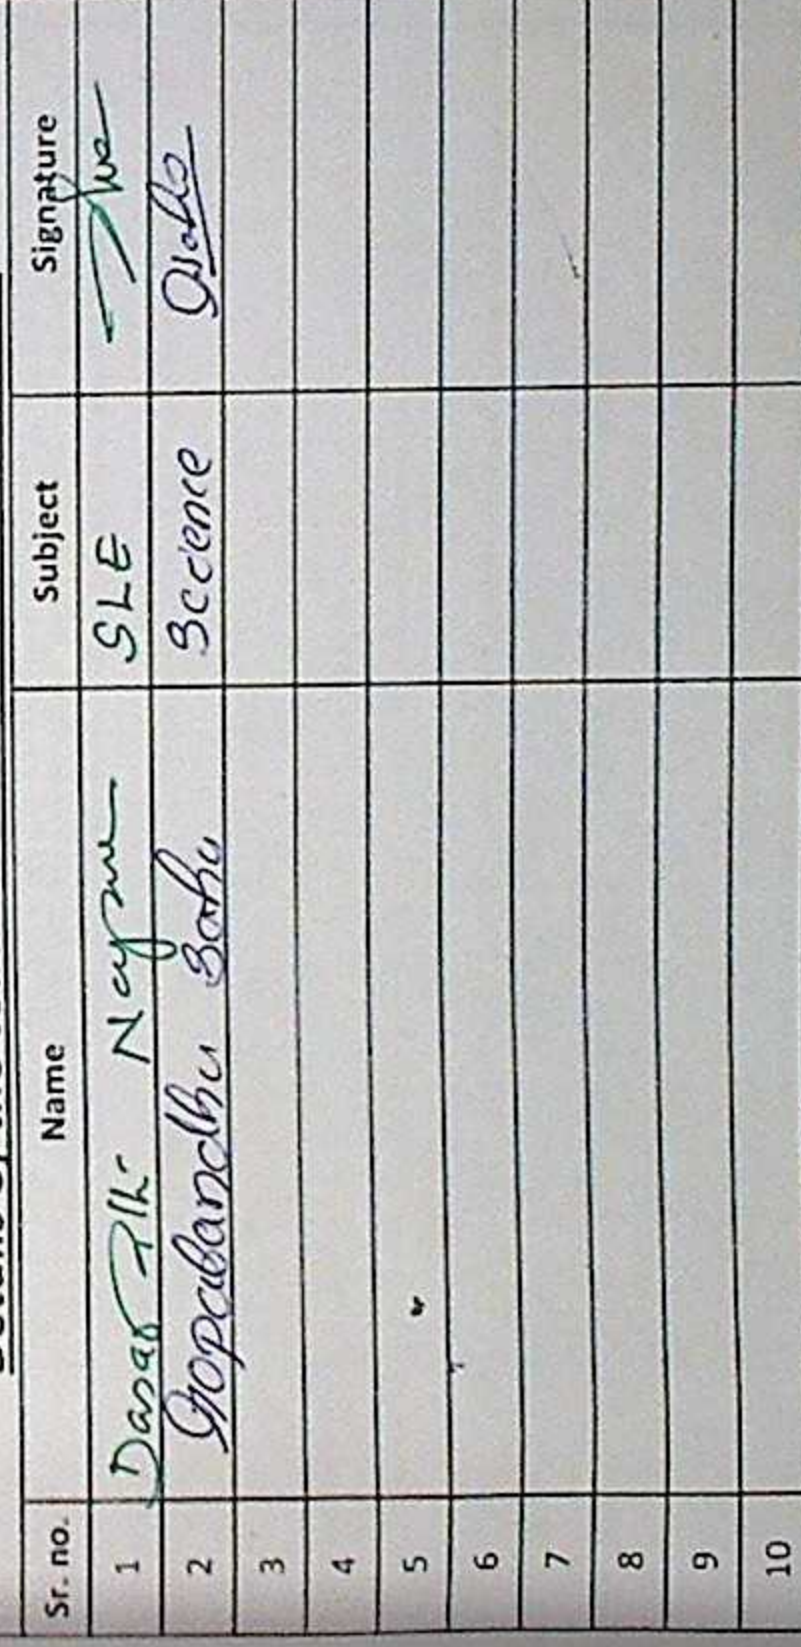 Sr. no. Name Subject Signature
1 SLE
2 Gopabandhu Sahu Science GSahu
3
4
5
6
7
8
9
10